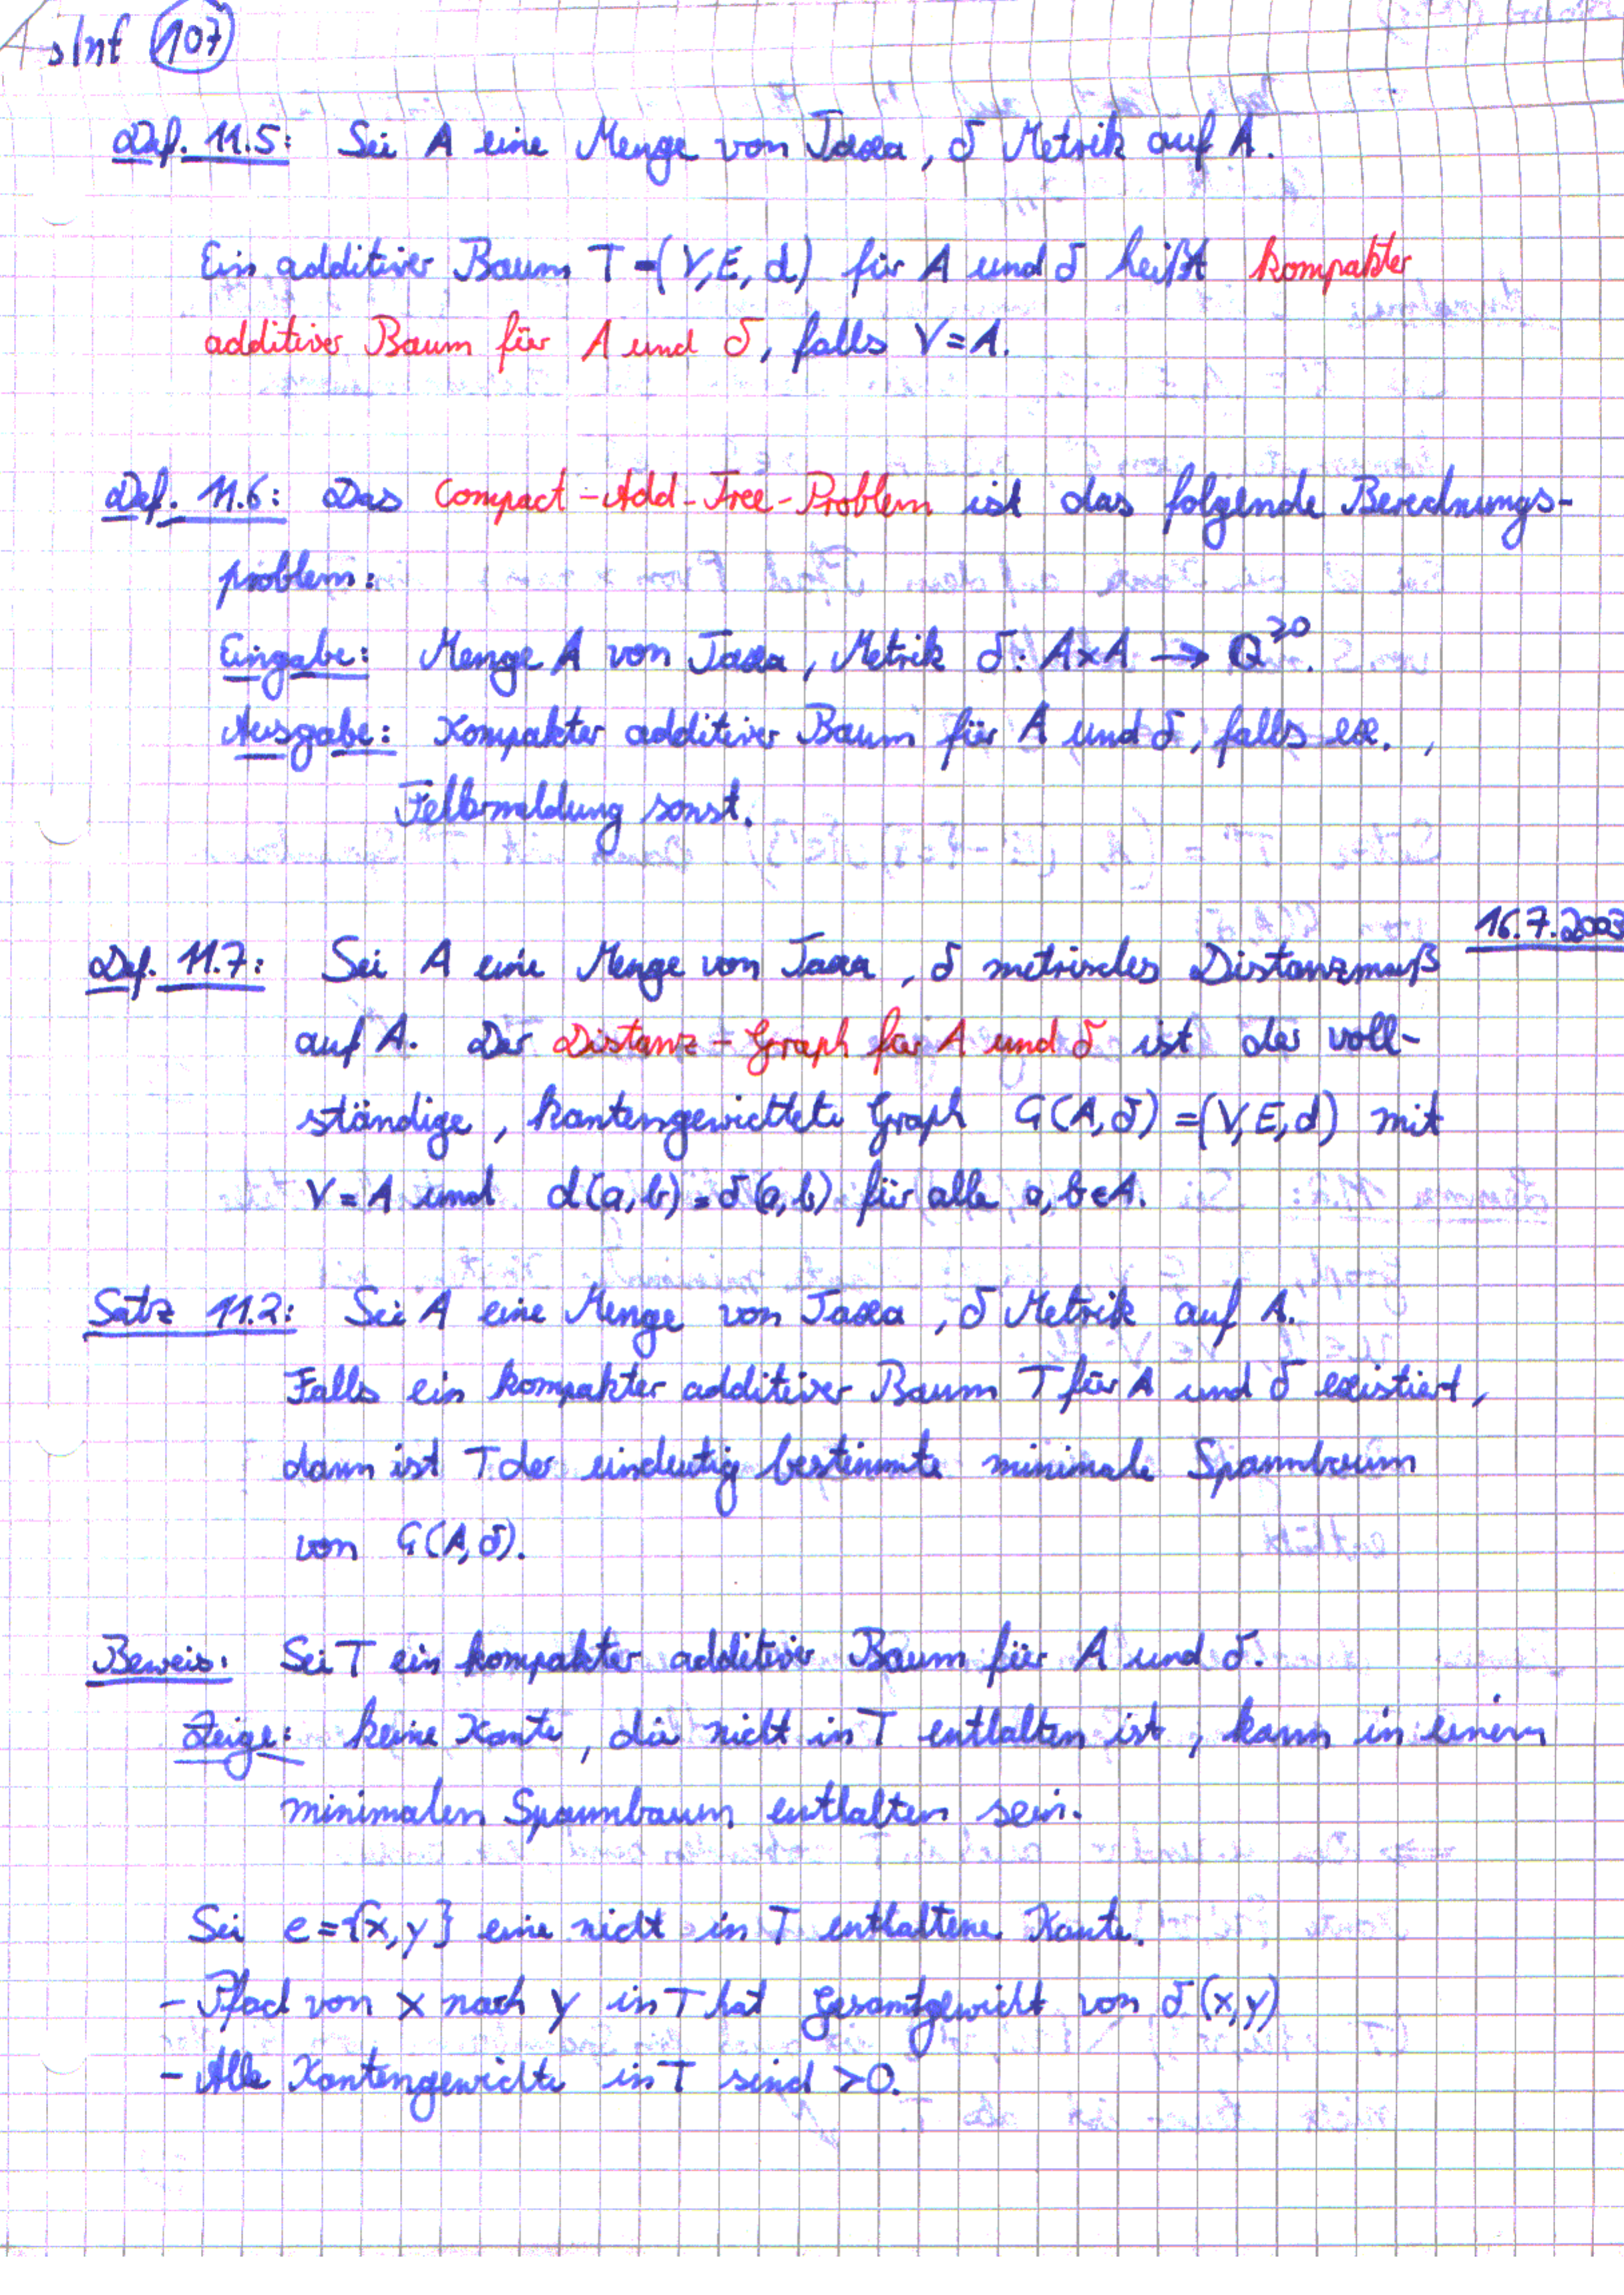 sInf 107
Def. 11.5: Sei A eine Menge von Taxa, δ Metrik auf A.
Ein additiver Baum T=(V,E,d) für A und δ heißt kompakter
additiver Baum für A und δ, falls V=A.
Def. 11.6: Das Compact-Add-Tree-Problem ist das folgende Berechnungs-
problem:
Eingabe: Menge A von Taxa, Metrik δ: A×A → Q^≥0.
Ausgabe: Kompakter additiver Baum für A und δ, falls ex. ,
Fehlermeldung sonst.
16.7.2003
Def. 11.7: Sei A eine Menge von Taxa, δ metrisches Distanzmaß
auf A. Der Distanz-Graph für A und δ ist der voll-
ständige, kantengewichtete Graph G(A,δ)=(V,E,d) mit
V=A und d(a,b)=δ(a,b) für alle a,b∈A.
Satz 11.2: Sei A eine Menge von Taxa, δ Metrik auf A.
Falls ein kompakter additiver Baum T für A und δ existiert,
dann ist T der eindeutig bestimmte minimale Spannbaum
von G(A,δ).
Beweis: Sei T ein kompakter additiver Baum für A und δ.
Zeige: keine Kante, die nicht in T enthalten ist, kann in einem
minimalen Spannbaum enthalten sein.
Sei e={x,y} eine nicht in T enthaltene Kante.
- Pfad von x nach y in T hat Gesamtgewicht von δ(x,y)
- Alle Kantengewichte in T sind >0.